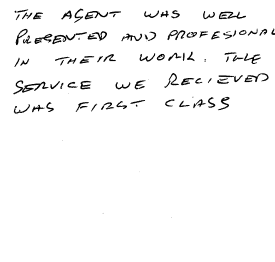 THE AGENT WAS WELL
PRESENTED AND PROFESIONAL
IN THEIR WORK. THE
SERVICE WE RECIEVED
WAS FIRST CLASS